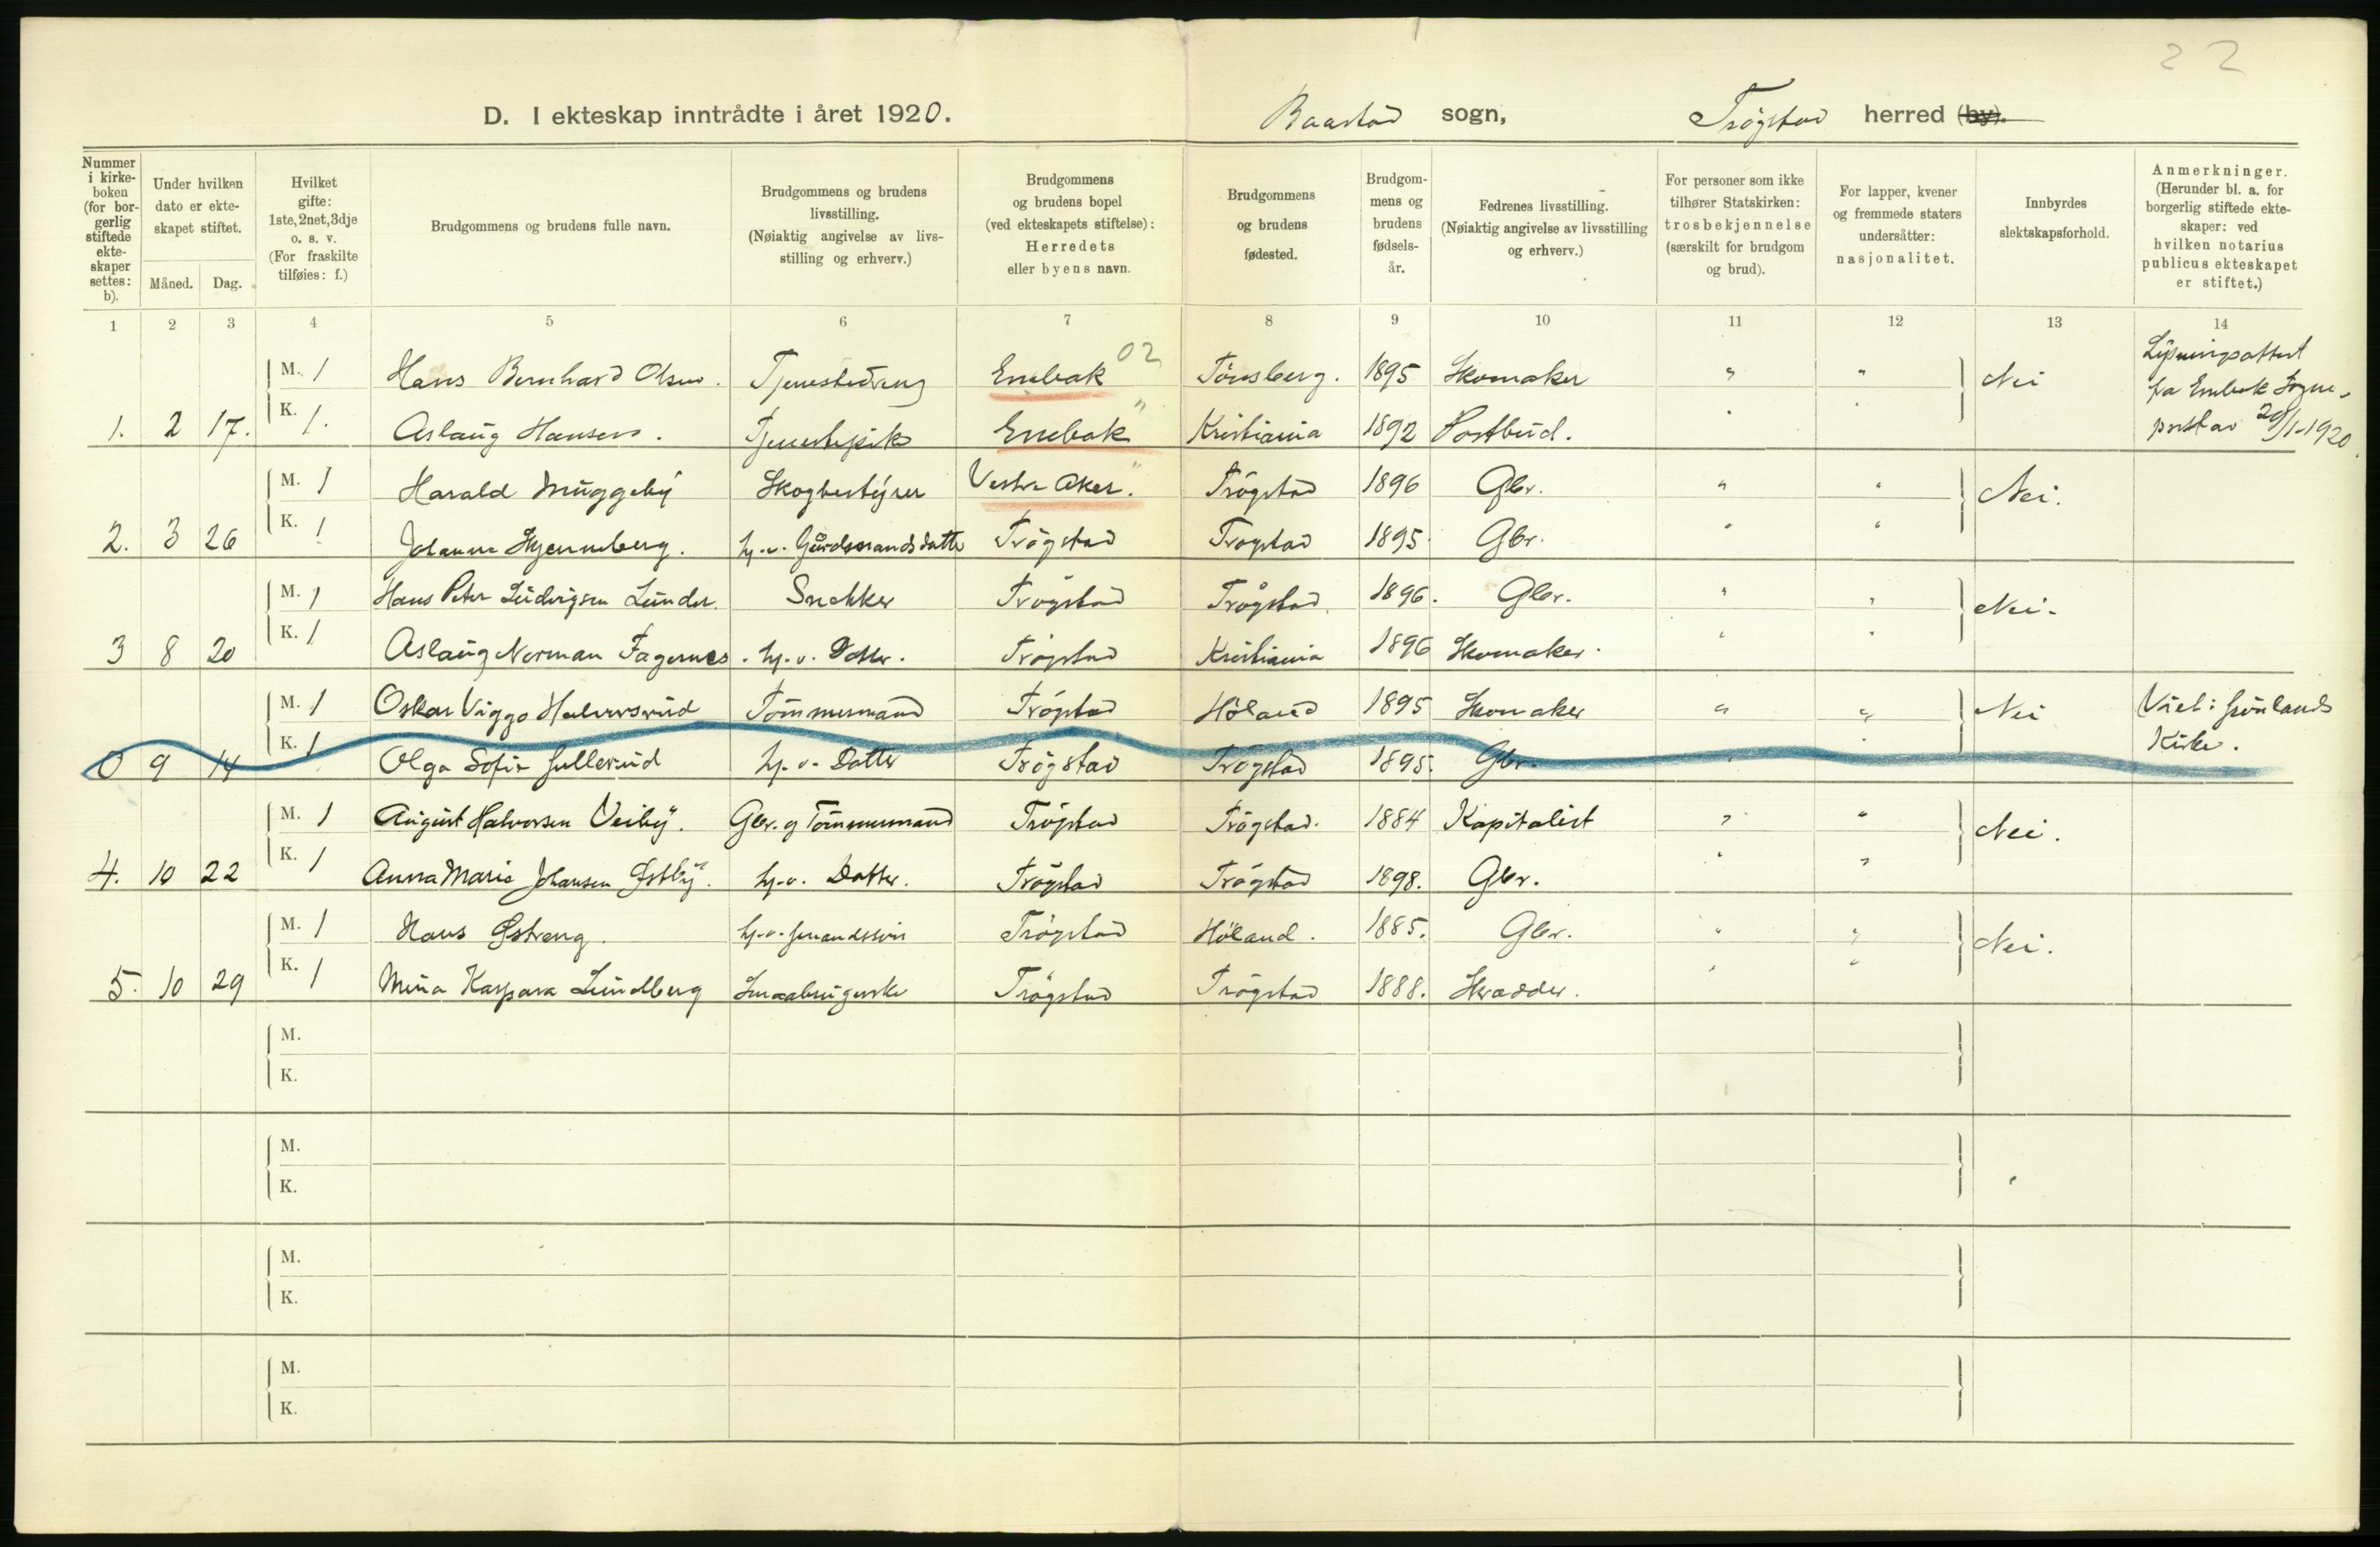 22
D. I ekteskap inntrådte i året 1920. Baastad sogn, Trøgstad herred (by).
Nummer i kirkeboken (for borgerlig stiftede ekteskaper settes: b).
Under hvilken dato er ekteskapet stiftet.
Måned. Dag.
Hvilket gifte: 1ste, 2net, 3dje o. s. v. (For fraskilte tilføies: f.)
Brudgommens og brudens fulle navn.
Brudgommens og brudens livsstilling. (Nøiaktig angivelse av livsstilling og erhverv.)
Brudgommens og brudens bopel (ved ekteskapets stiftelse): Herredets eller byens navn.
Brudgommens og brudens fødested.
Brudgommens og brudens fødselsår.
Fedrenes livsstilling. (Nøiaktig angivelse av livsstilling og erhverv.)
For personer som ikke tilhører Statskirken: trosbekjennelse (særskilt for brudgom og brud).
For lapper, kvener og fremmede staters undersåtter: nasjonalitet.
Innbyrdes slektskapsforhold.
Anmerkninger. (Herunder bl. a. for borgerlig stiftede ekteskaper: ved hvilken notarius publicus ekteskapet er stiftet.)
1 2 3 4 5 6 7 8 9 10 11 12 13 14
M. 1 Hans Bernhard Olsen. Tjenestedreng Enebak 02 Tønsberg. 1895 Skomaker " " Nei Lysningsattest fra Enebak Sogne-
1. 2 17. K. 1. Aslaug Hansen. Tjenestepike Enebak " Kristiania 1892 Postbud. " " prest av 20/1-1920.
M. 1 Harald Muggeby Skogbestyrer Vestre Aker. " Trøgstad 1896 Gbr. " " Nei.
2. 3 26 K. 1 Johanne Skjenneberg. hj.v. Gårdmandsdatter Trøgstad Trøgstad 1895. Gbr. " "
M. 1 Hans Peter Ludvigsen Lunder. Snekker Trøgstad Trøgstad. 1896. Gbr. " " Nei.
3 8 20 K. 1 Aslaug Norman Fagernes. hj.v. Datter. Trøgstad Kristiania 1896 Skomaker. " "
M. 1 Oskar Viggo Halvorsrud Tømmermand Trøgstad Høland 1895 Skomaker " " Nei Viet i Grønlands
0 9 14 K. 1 Olga Sofie Gullerud hj.v. Datter Trøgstad Trøgstad 1895. Gbr. " " Kirke.
M. 1 August Halvorsen Veiby. Gbr. og Tømmermand Trøgstad Trøgstad. 1884 Kapitalist " " Nei.
4. 10 22 K. 1 Anna Marie Johansen Østby. hj.v. Datter. Trøgstad Trøgstad 1898. Gbr. " "
M. 1 Hans Østreng. Trøgstad Høland. 1885. Gbr. " " Nei.
5. 10 29 K. 1 Mina Kaspara Lundberg Smaabrugerske Trøgstad Trøgstad 1888. Skrædder. " "
M.
K.
M.
K.
M.
K.
M.
K.